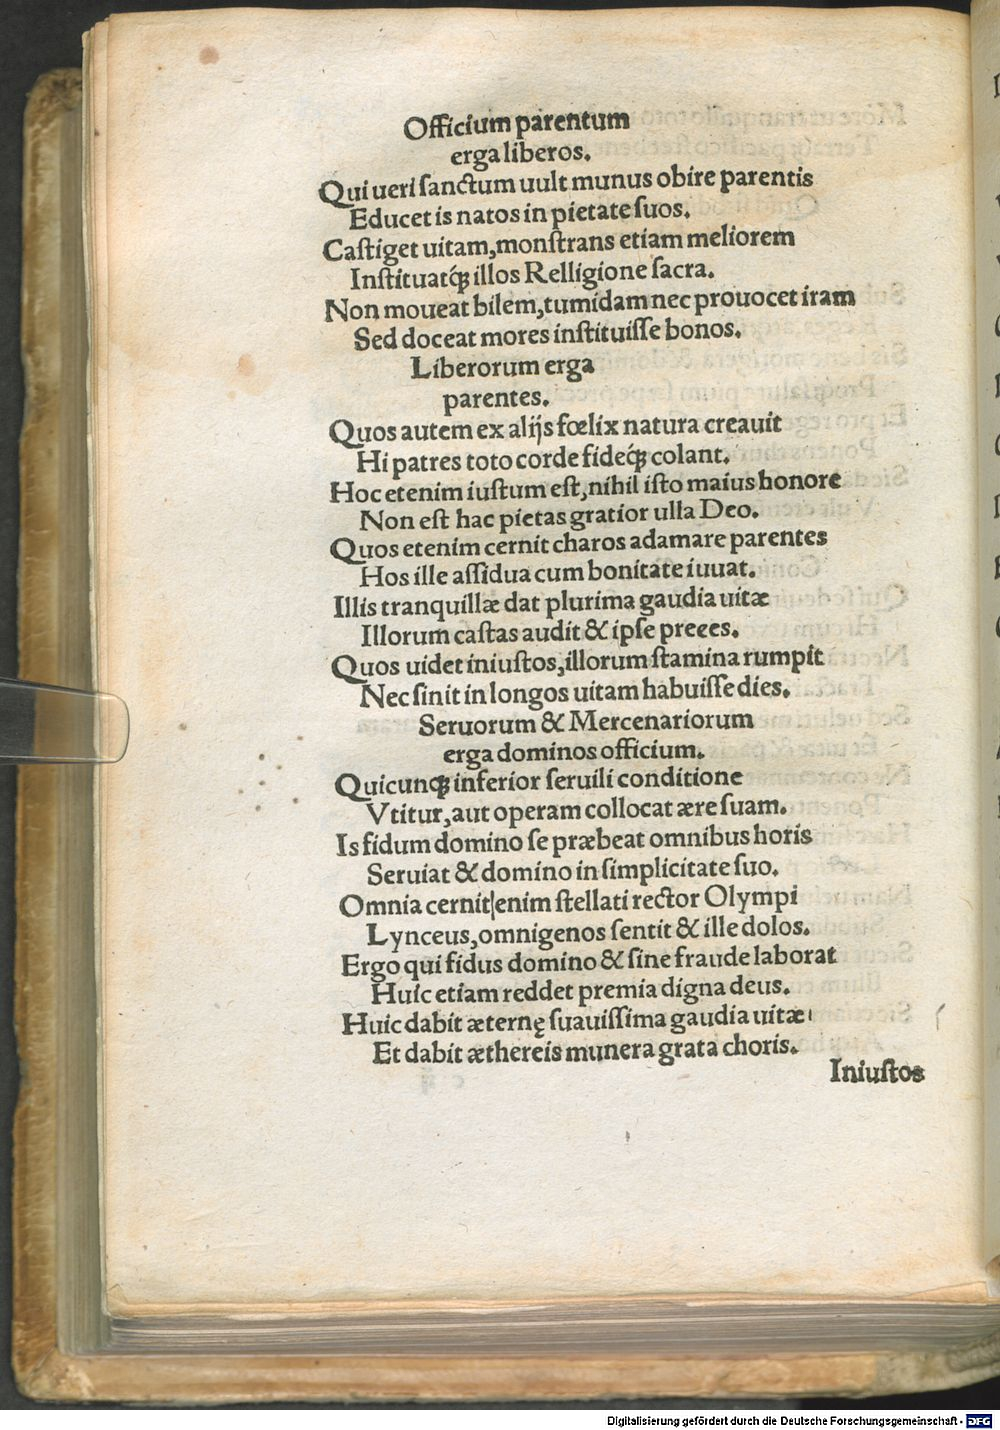 Officium parentum
erga liberos.
Qui ueri ſanctum uult munus obire parentis
Educet is natos in pietate ſuos.
Caſtiget uitam, monſtrans etiam meliorem
Inſtituatq́ꝫ illos Relligione ſacra.
Non moueat bilem, tumidam nec prouocet iram
Sed doceat mores inſtituiſſe bonos.
Liberorum erga
parentes.
Quos autem ex alijs fœlix natura creauit
Hi patres toto corde fideq́ꝫ colant.
Hoc etenim iuſtum eſt, nihil iſto maius honore
Non eſt hac pietas gratior ulla Deo.
Quos etenim cernit charos adamare parentes
Hos ille aſſidua cum bonitate iuuat.
Illis tranquillæ dat plurima gaudia uitæ
Illorum caſtas audit & ipſe preees.
Quos uidet iniuſtos, illorum ſtamina rumpit
Nec ſinit in longos uitam habuiſſe dies.
Seruorum & Mercenariorum
erga dominos officium.
Quicunqꝫ inferior ſeruili conditione
Vtitur, aut operam collocat ære ſuam.
Is fidum domino ſe præbeat omnibus horis
Seruiat & domino in ſimplicitate ſuo.
Omnia cernit enim ſtellati rector Olympi
Lynceus, omnigenos ſentit & ille dolos.
Ergo qui fidus domino & ſine fraude laborat
Huic etiam reddet premia digna deus.
Huic dabit æternę ſuauiſſima gaudia uitæ
Et dabit æthereis munera grata choris.
Iniuſtos
Digitalisierung gefördert durch die Deutsche Forschungsgemeinschaft - DFG